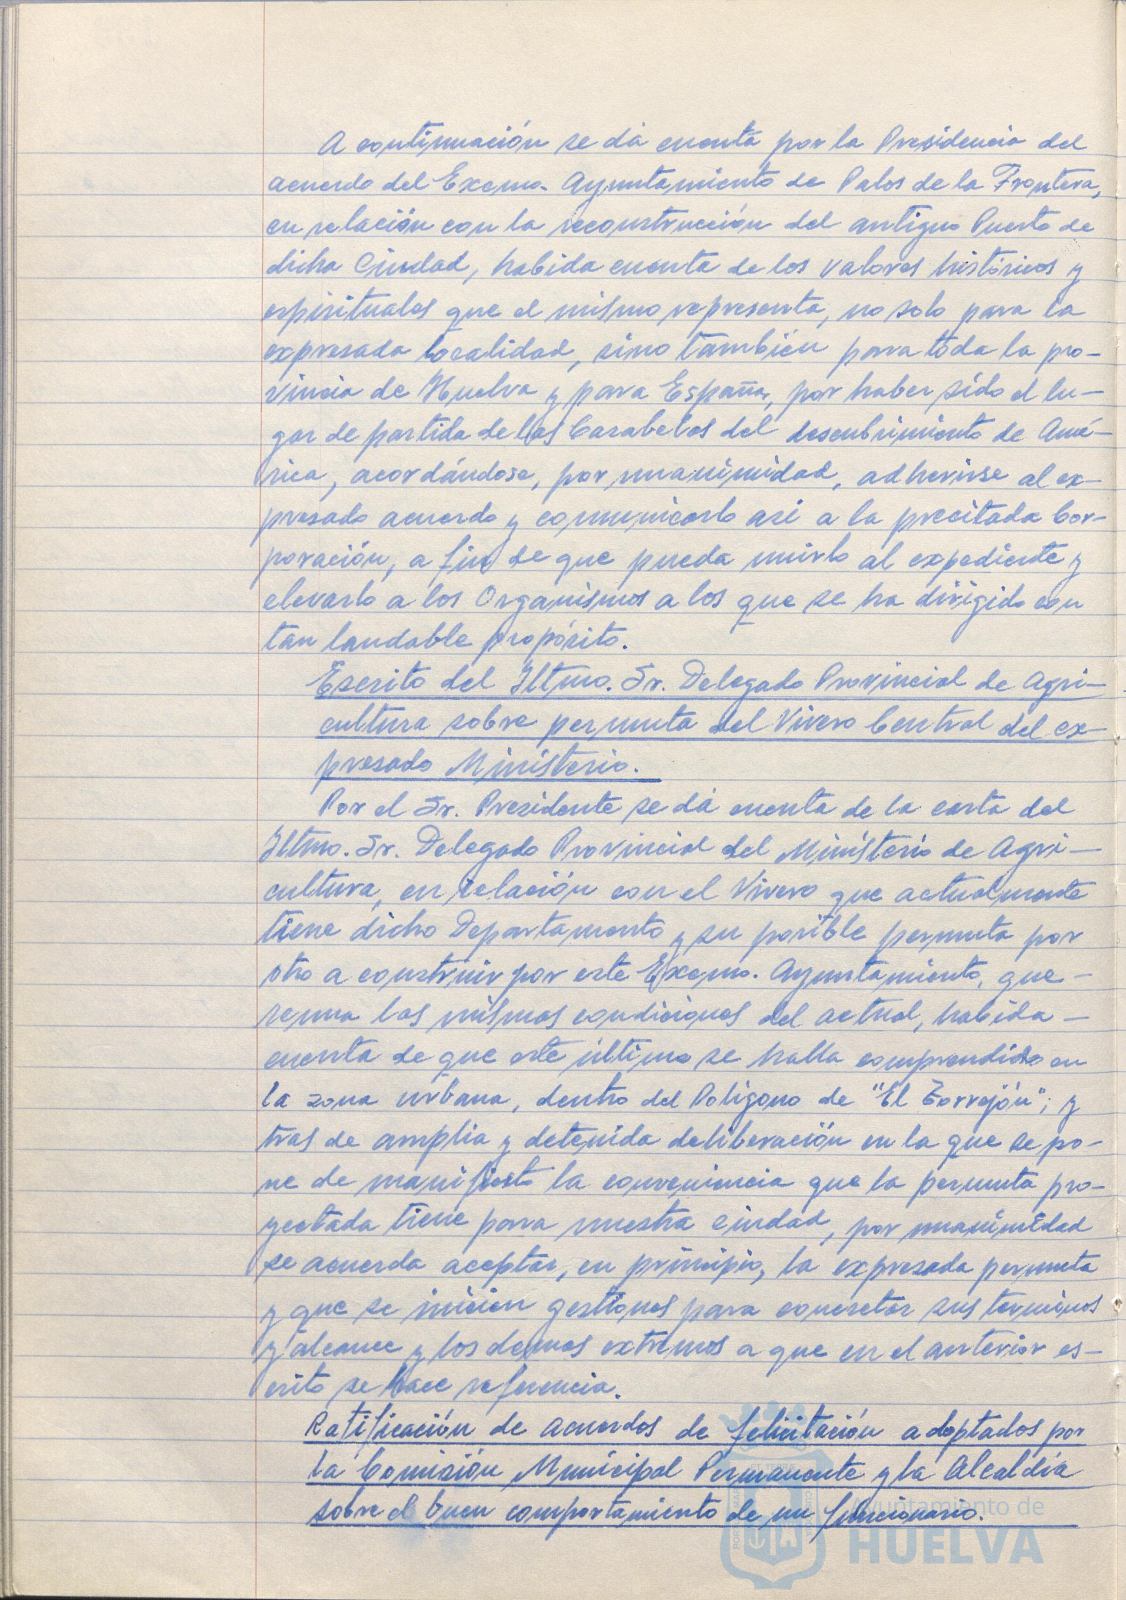 A continuación se dá cuenta por la Presidencia del
acuerdo del Excmo. Ayuntamiento de Palos de la Frontera,
en relación con la reconstrucción del antiguo Puerto de
dicha Ciudad, habida cuenta de los valores históricos y
espirituales que el mismo representa, no solo para la
expresada localidad, sino también para toda la pro-
vincia de Huelva y para España, por haber sido el lu-
gar de partida de las Carabelas del descubrimiento de Amé-
rica, acordándose, por unanimidad, adherirse al ex-
presado acuerdo y comunicarlo asi a la precitada Cor-
poración, a fin de que pueda unirlo al expediente y
elevarlo a los Organismos a los que se ha dirigido con
tan laudable propósito.
Escrito del Iltmo. Sr. Delegado Provincial de Agri-
cultura sobre permuta del Vivero Central del ex-
presado Ministerio.
Por el Sr. Presidente se dá cuenta de la carta del
Iltmo. Sr. Delegado Provincial del Ministerio de Agri-
cultura, en relación con el Vivero que actualmente
tiene dicho Departamento y su posible permuta por
otro a construir por este Excmo. Ayuntamiento, que
reuna las mismas condiciones del actual, habida
cuenta de que este último se halla comprendido en
la zona urbana, dentro del Poligono de "El Torrejón"; y
tras de amplia y detenida deliberación en la que se po-
ne de manifiesto la conveniencia que la permuta pro-
yectada tiene para nuestra ciudad, por unanimidad
se acuerda aceptar, en principio, la expresada permuta
y que se inicien gestiones para concretar sus terminos
y alcance y los demas extremos a que en el anterior es-
crito se hace referencia.
Ratificación de acuerdos de felicitación adoptados por
la Comisión Municipal Permanente y la Alcaldía
sobre el buen comportamiento de un funcionario.
Ayuntamiento de
HUELVA